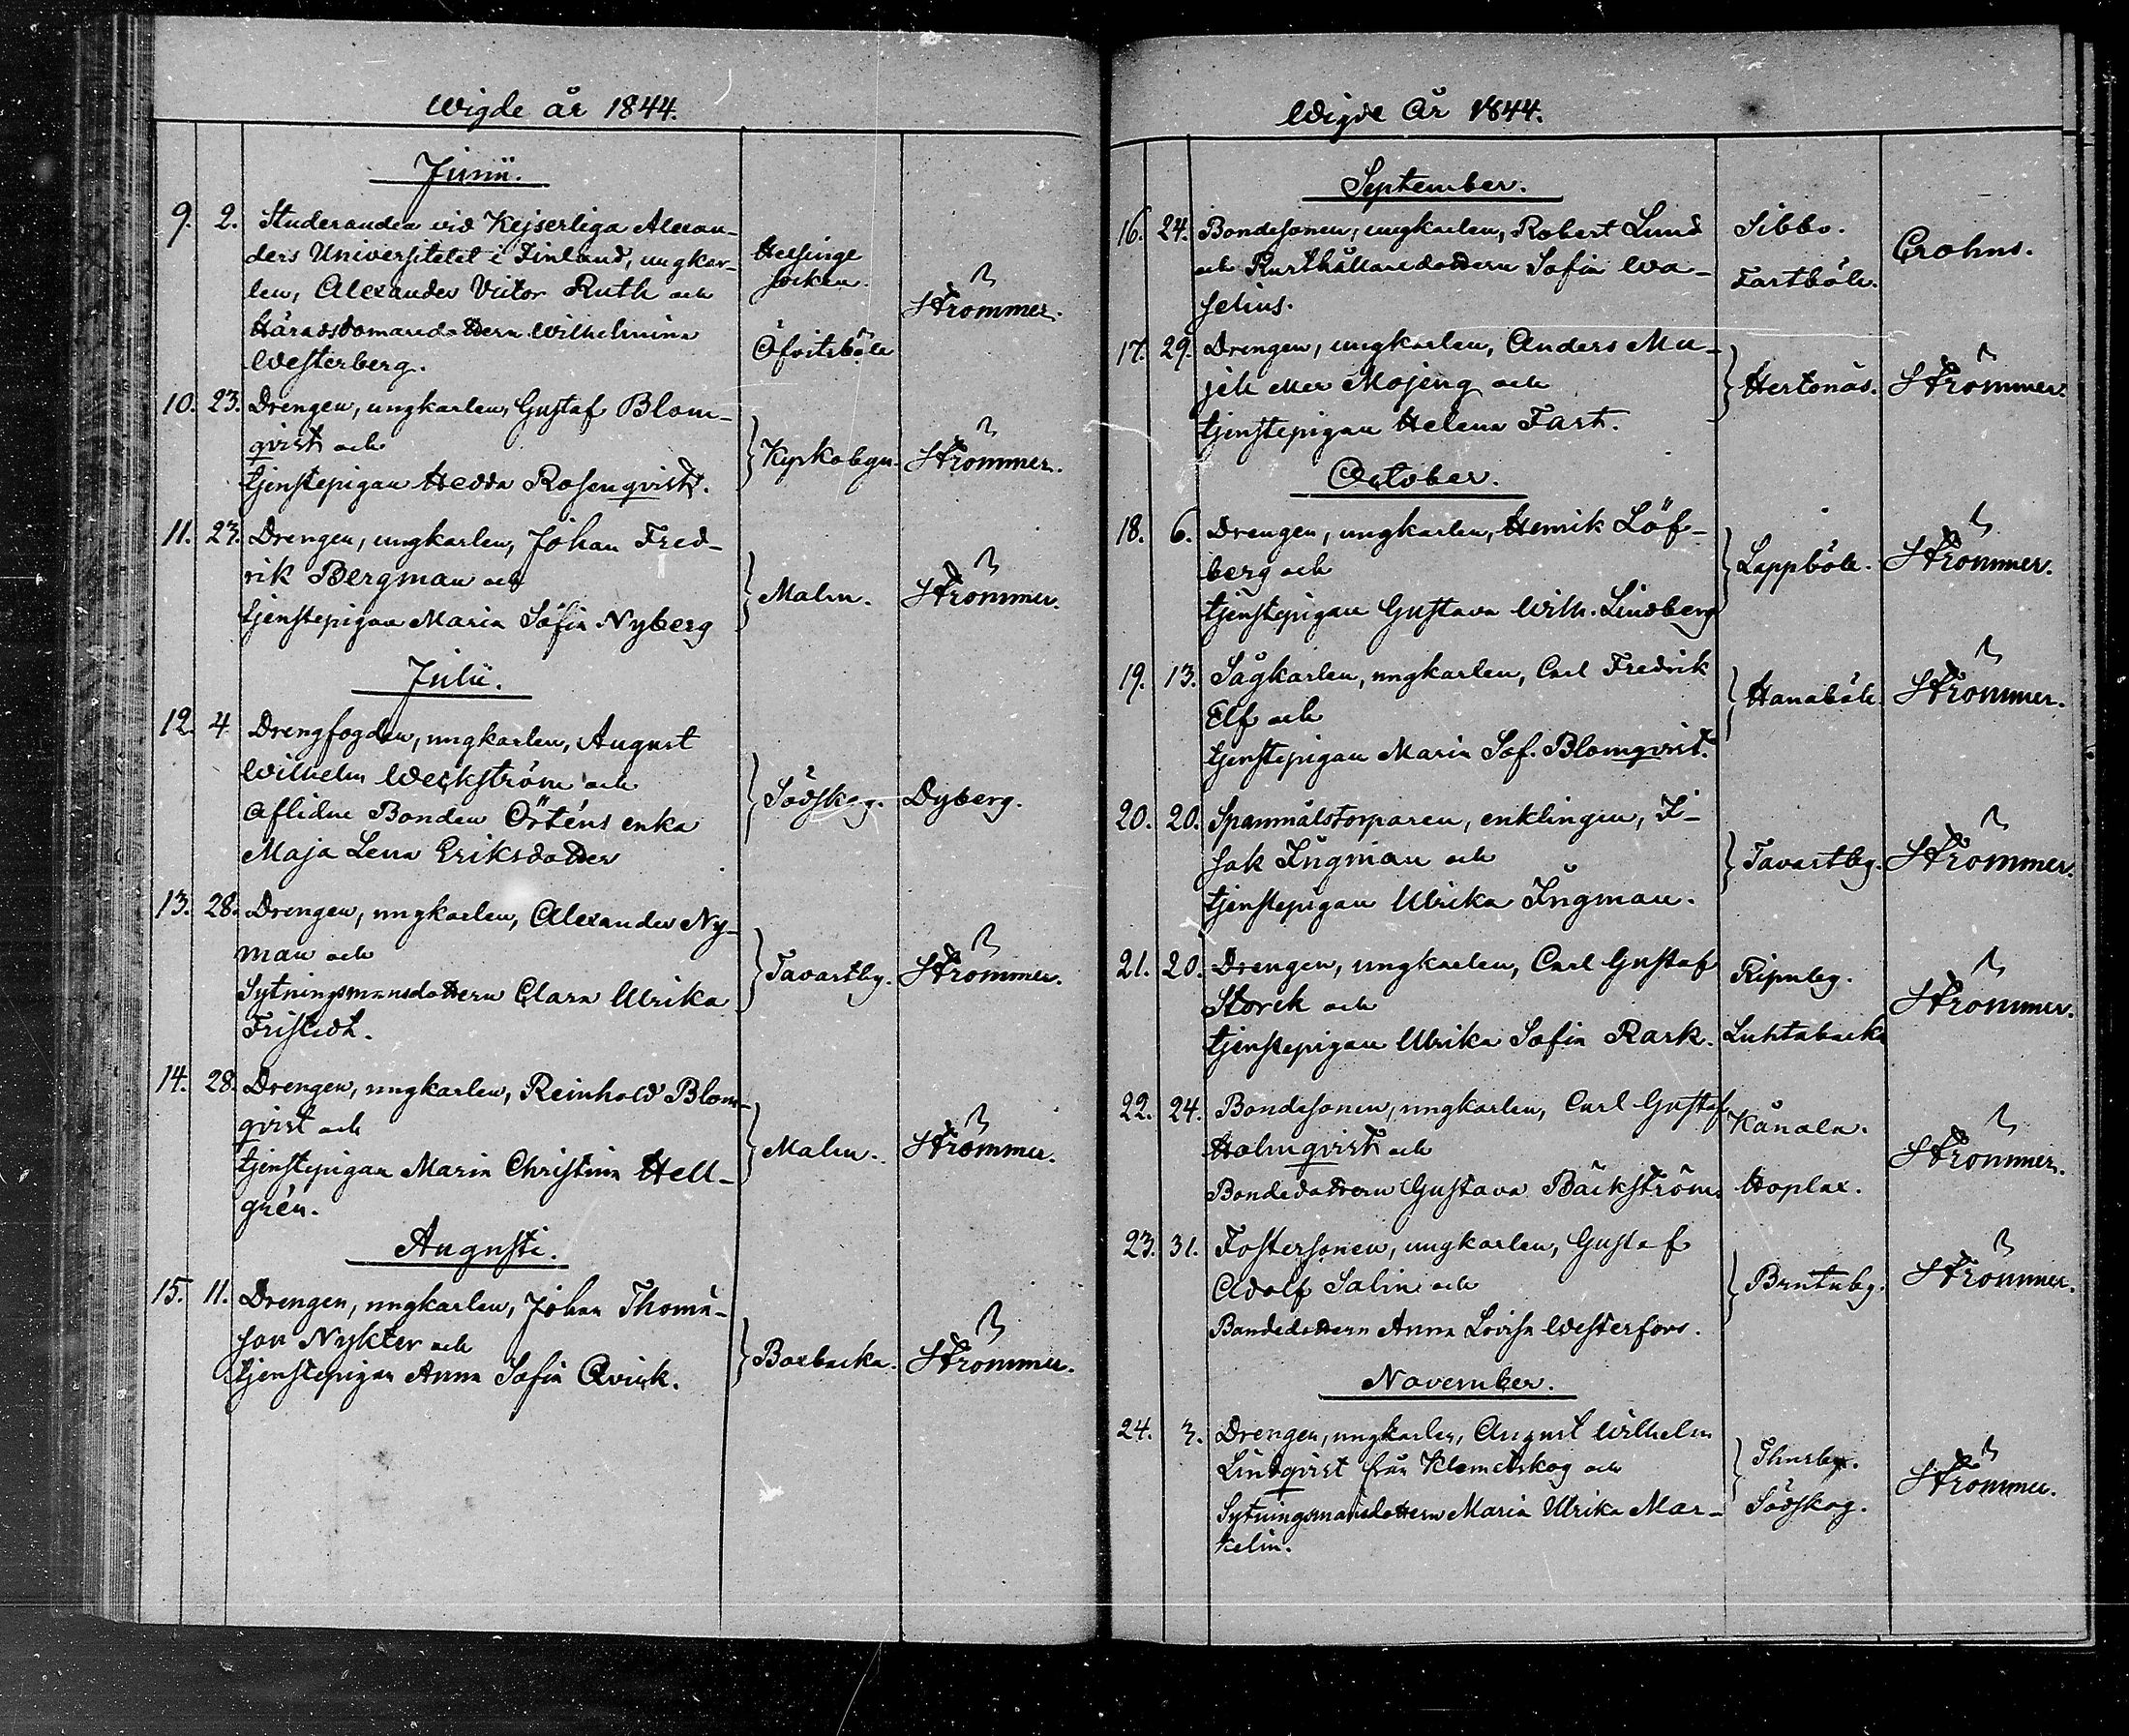 Wigde år 1844.
Junii.
9. 2. Studeranden vid Kejserliga Alexan-
ders Universitetet i Finland, ungkar-
len, Alexander Victor Ruth och
Häradsdomaredottern Wilhelmina
Westerberg.
Helsinge
socken.
Öfvitsböle
Strömmer.
10. 23. Drengen, ungkarlen, Gustaf Blom-
qvist och
tjenstepigan Hedda Rosenqvist.
Kyrkobyn.
Strömmer.
11. 23. Drengen, ungkarlen, Johan Fred-
rik Bergman och
tjenstepigan Maria Sofia Nyberg
Malm.
Strömmer.
Julii.
12. 4 Drengfogden, ungkarlen, August
Wilhelm Weckström och
Aflidne Bonden Örténs enka
Maja Lena Eriksdotter
Södskog.
Dyberg.
13. 28. Drengen, ungkarlen, Alexander Ny-
man och
Sytningsmansdottern Clara Ulrika
Fristedt.
Tavastby.
Strömmer.
14. 28. Drengen, ungkarlen, Reinhold Blom-
qvist och
tjenstepigan Maria Christina Hell-
grén.
Malm.
Strömmer.
Augusti.
15. 11. Drengen, ungkarlen, Johan Thomæ-
son Nykter och
tjenstepigan Anna Sofia Qvick.
Boxbacka.
Strömmer.
Wigde År 1844.
September.
16. 24. Bondesonen, ungkarlen, Robert Lund
och Rusthållaredottern Sofia Wa-
selius.
Sibbo.
Fastböle.
Crohns.
17. 29. Drengen, ungkarlen, Anders Mu-
jeli eller Mojeng och
tjenstepigan Helena Fast.
Hertonäs.
Strömmer.
October.
18. 6. Drengen, ungkarlen, Henrik Löf-
berg och
tjenstepigan Gustava Wilh. Lindberg
Lappböle.
Strömmer.
19. 13. Sågkarlen, ungkarlen, Carl Fredrik
Elf och
tjenstepigan Maria Sof. Blomqvist.
Hanaböle
Strömmer.
20. 20. Spannmålstorparen, enklingen, I-
sak Ingman och
tjenstepigan Ulrika Ingman.
Tavastby.
Strömmer.
21. 20. Drengen, ungkarlen, Carl Gustaf
Storck och
tjenstepigan Ulrika Sofia Rask.
Ripuby.
Luhtabacka
Strömmer.
22. 24. Bondesonen, ungkarlen, Carl Gustaf
Holmqvist och
Bondedottern Gustava Bäckström.
Kånala.
Hoplax.
Strömmer.
23. 31. Fostersonen, ungkarlen, Gustaf
Adolf Salin och
Bondedottern Anna Lovisa Westerfors.
Brutuby.
Strömmer.
November.
24. 3. Drengen, ungkarlen, August Wilhelm
Lindqvist från Klemetskog och
Sytningsmansdottern Maria Ulrika Mar-
kelin.
Thusby.
Södskog.
Strömmer.